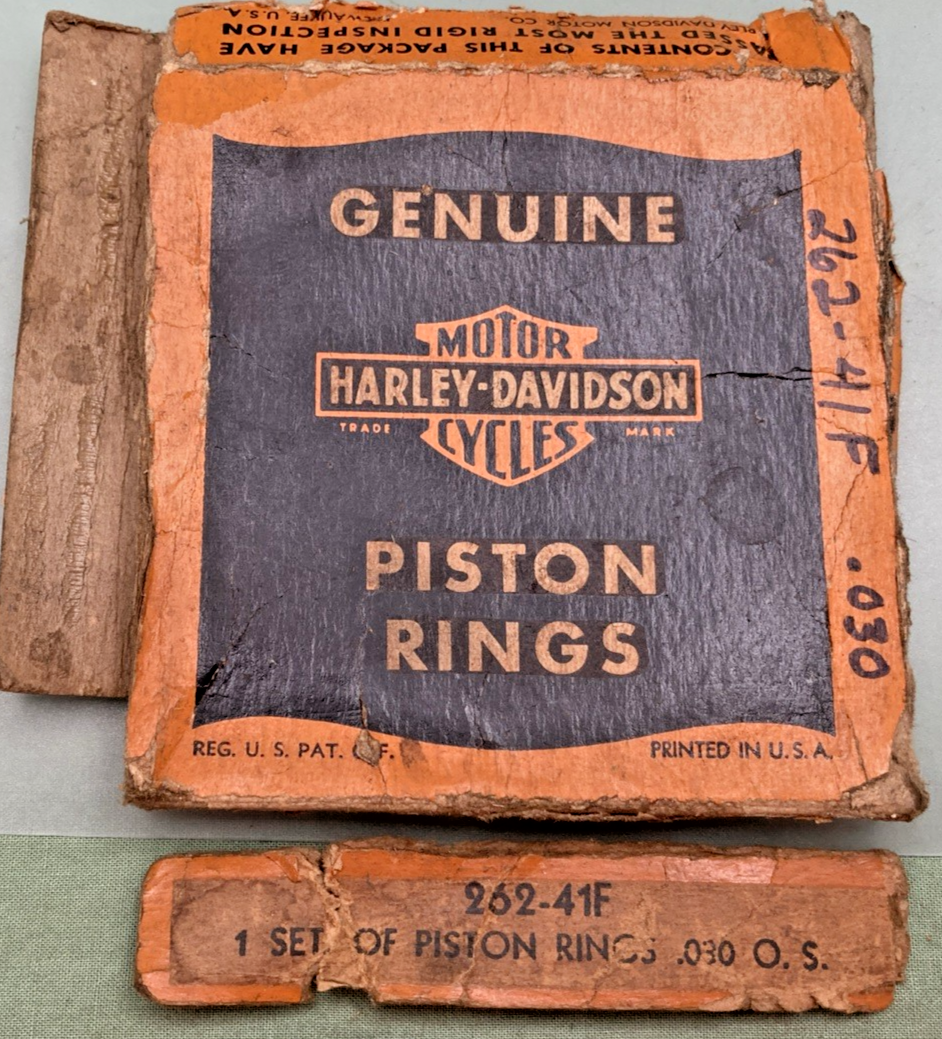 CONTENTS OF THIS PACKAGE HAVE
THE MOST RIGID INSPECTION
DAVIDSON MOTOR CO.
U.S.A.
GENUINE
MOTOR
HARLEY-DAVIDSON
TRADE MARK
CYCLES
PISTON
RINGS
REG. U. S. PAT. F.
PRINTED IN U. S. A.
262-41F .030
262-41F
1 SET OF PISTON RINGS .030 O. S.